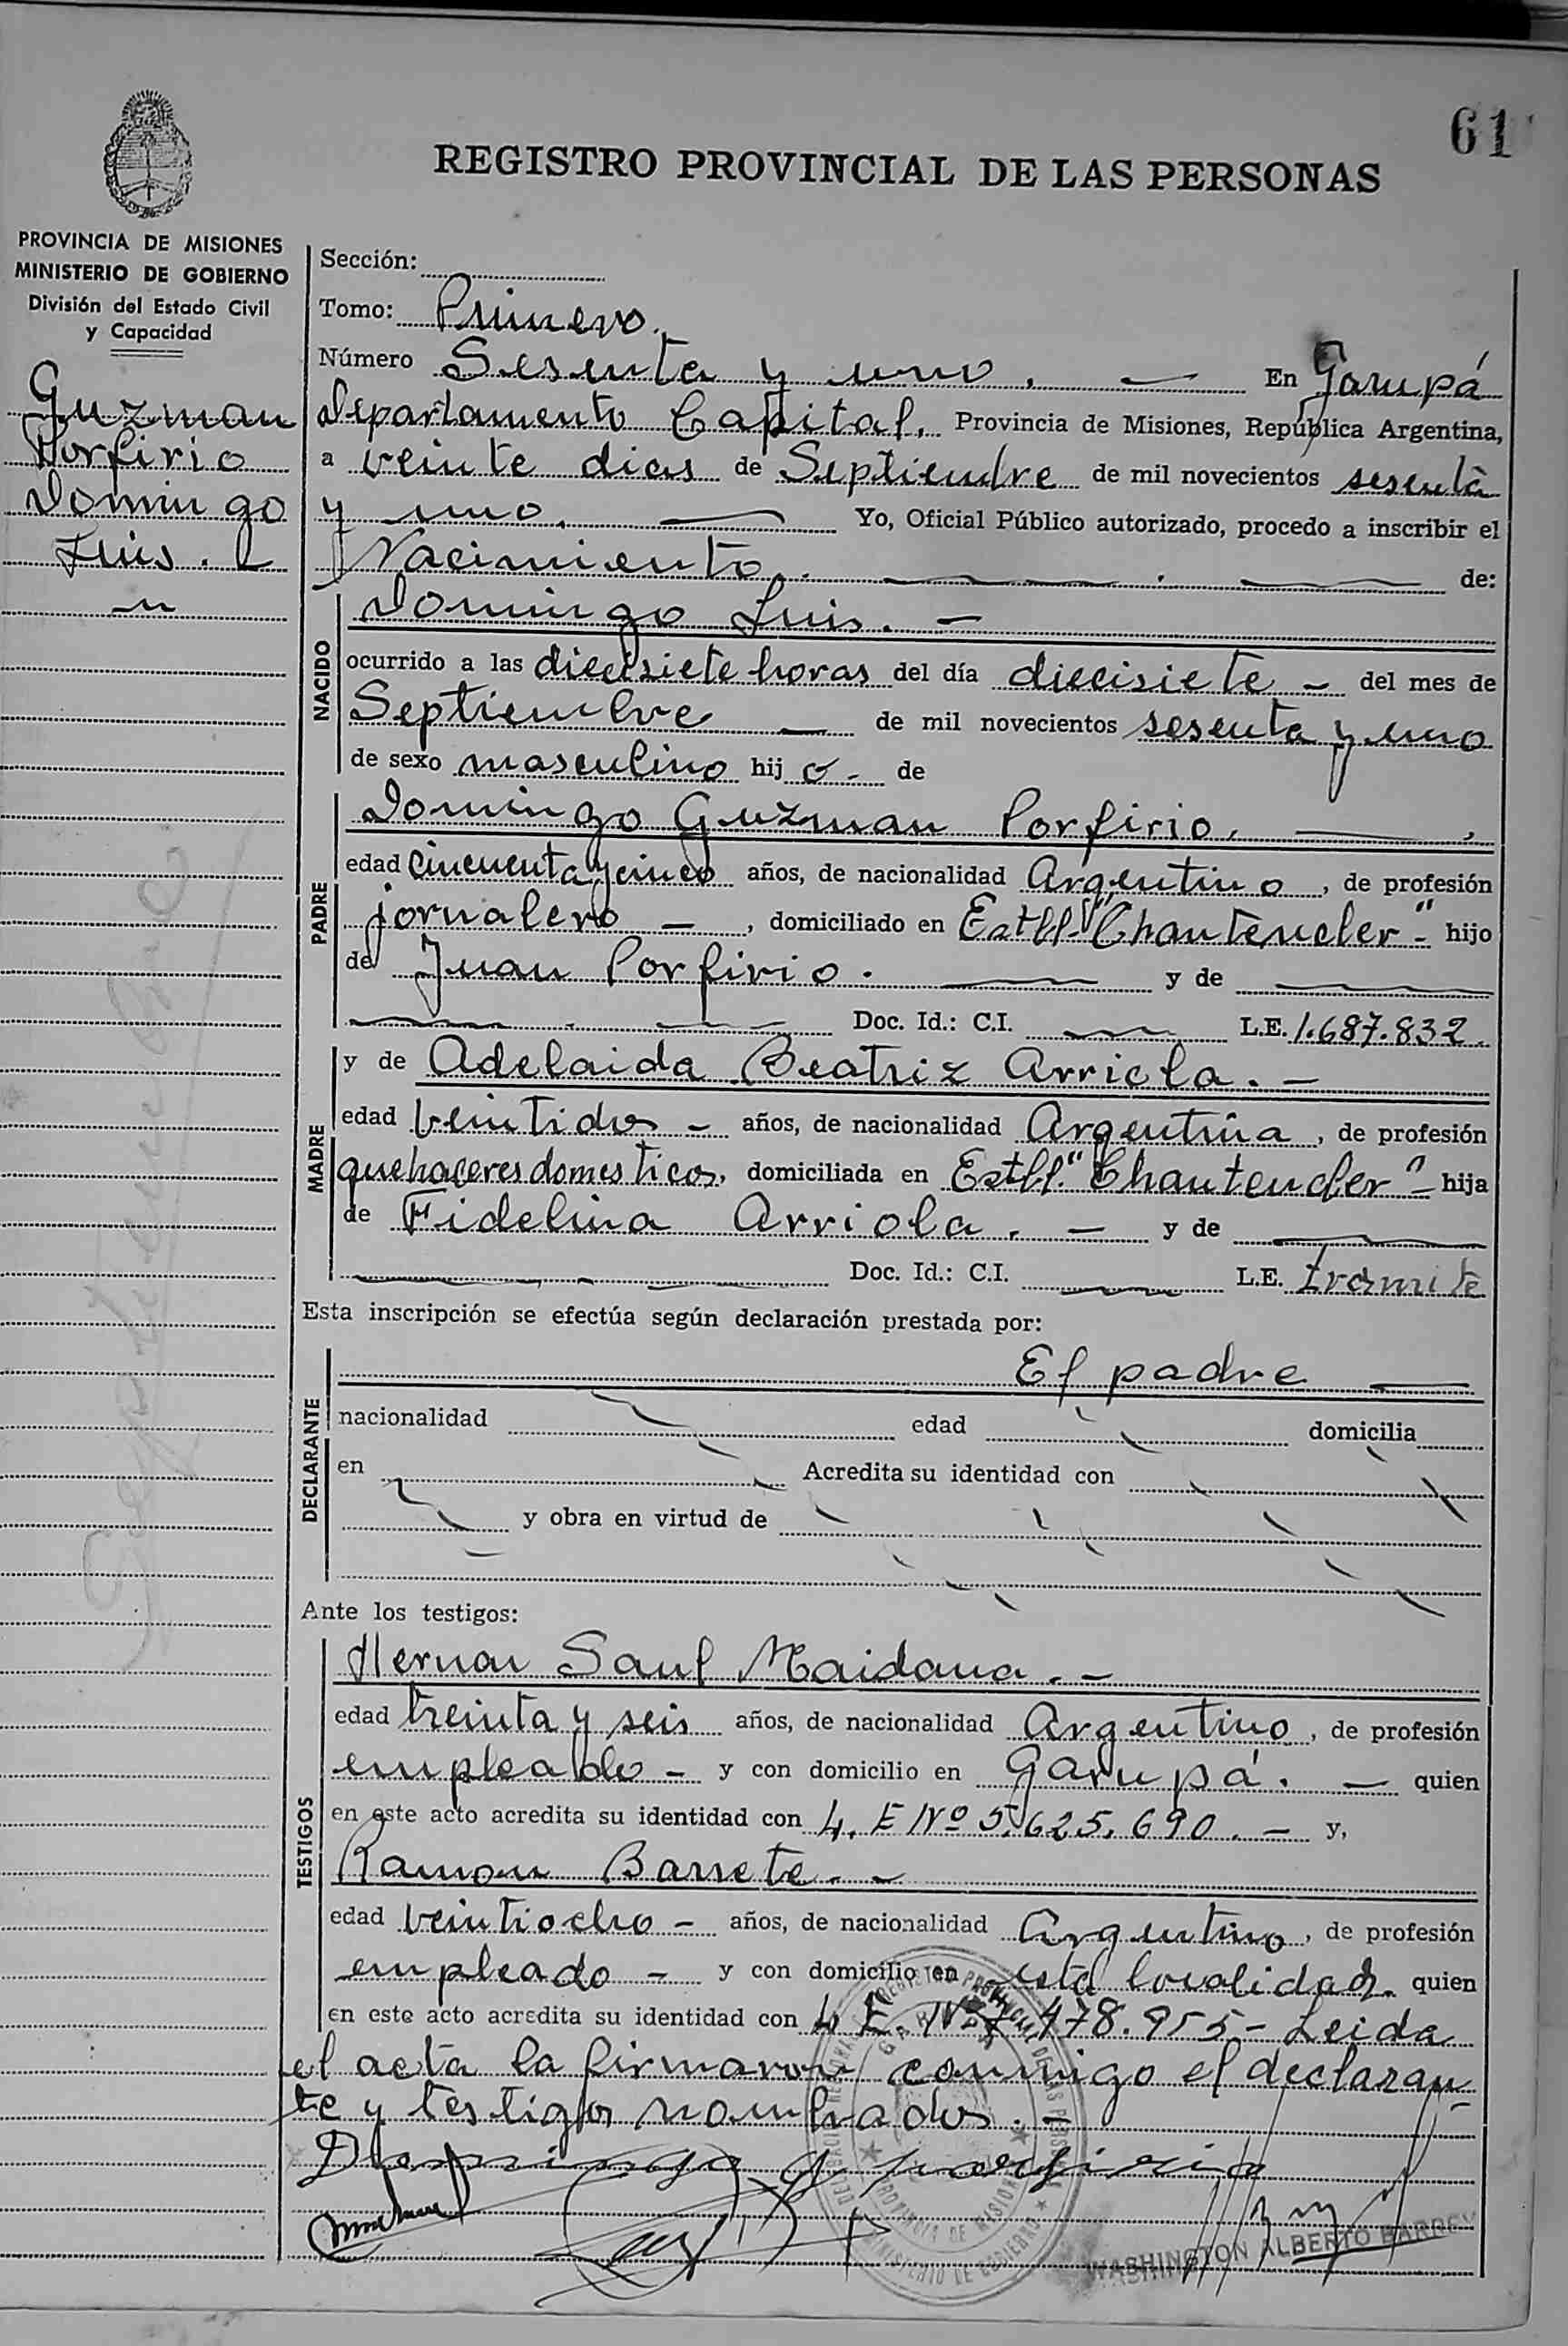 61
REGISTRO PROVINCIAL DE LAS PERSONAS
PROVINCIA DE MISIONES
MINISTERIO DE GOBIERNO
División del Estado Civil
y Capacidad
Guzman
Porfirio
Domingo
Luis.
Sección:
Tomo: Primero.
Número Sesenta y uno. — En Garupá
Departamento Capital, Provincia de Misiones, República Argentina,
a veinte dias de Septiembre de mil novecientos sesenta
y uno. — Yo, Oficial Público autorizado, procedo a inscribir el
Nacimiento. — de:
NACIDO
Domingo Luis. —
ocurrido a las diecisiete horas del día diecisiete — del mes de
Septiembre — de mil novecientos sesenta y uno
de sexo masculino hij o — de
PADRE
Domingo Guzman Porfirio. —
edad cincuenta y cinco años, de nacionalidad Argentino, de profesión
jornalero —, domiciliado en Estbl. "Chantencler" - hijo
de Juan Porfirio. — y de —
— Doc. Id.: C.I. — L.E. 1.687.832.
MADRE
y de Adelaida Beatriz Arriola. —
edad veintidos — años, de nacionalidad Argentina, de profesión
quehaceres domesticos, domiciliada en Estbl. "Chantencler" - hija
de Fidelina Arriola. — y de —
— Doc. Id.: C.I. — L.E. tramite
Esta inscripción se efectúa según declaración prestada por:
DECLARANTE
El padre —
nacionalidad edad domicilia
en Acredita su identidad con
y obra en virtud de
Ante los testigos:
TESTIGOS
Hernan Saul Maidana. —
edad treinta y seis años, de nacionalidad Argentino, de profesión
empleado — y con domicilio en Garupá. — quien
en este acto acredita su identidad con L. E Nº 5.625.690. — y,
Ramon Barrete. —
edad veintiocho — años, de nacionalidad Argentino, de profesión
empleado — y con domicilio en esta localidad. quien
en este acto acredita su identidad con L. E. Nº 7.478.955 - Leida
el acta la firmaron conmigo el declaran-
te y testigos nombrados. —
Domingo g porfirio
WASHINGTON ALBERTO